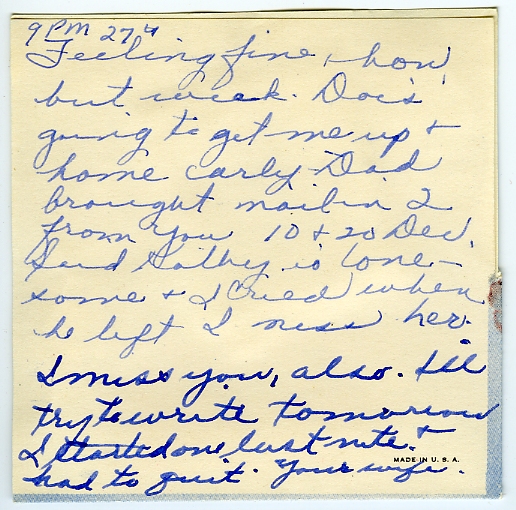 9 PM 27th
Feeling fine, now
but weak. Doc's
going to get me up &
home early. Dad
brought mail in 2
from you 10 & 20 Dec.
Said Kathy is lone-
some & I cried when
he left I miss her.
I miss you, also. I'll
try to write tomorrow
I started one last nite. &
had to quit. Your wife.
MADE IN U.S.A.